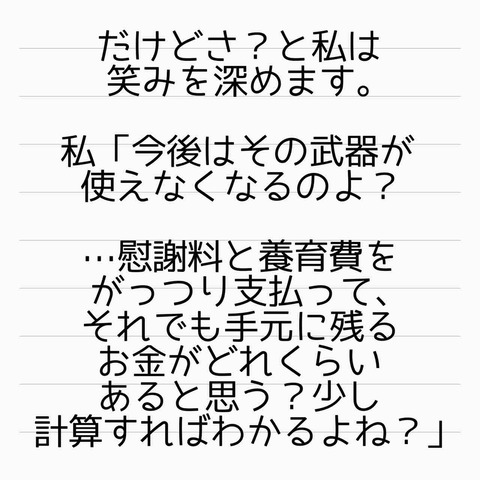 だけどさ？と私は
笑みを深めます。
私「今後はその武器が
使えなくなるのよ？
…慰謝料と養育費を
がっつり支払って、
それでも手元に残る
お金がどれくらい
あると思う？少し
計算すればわかるよね？」